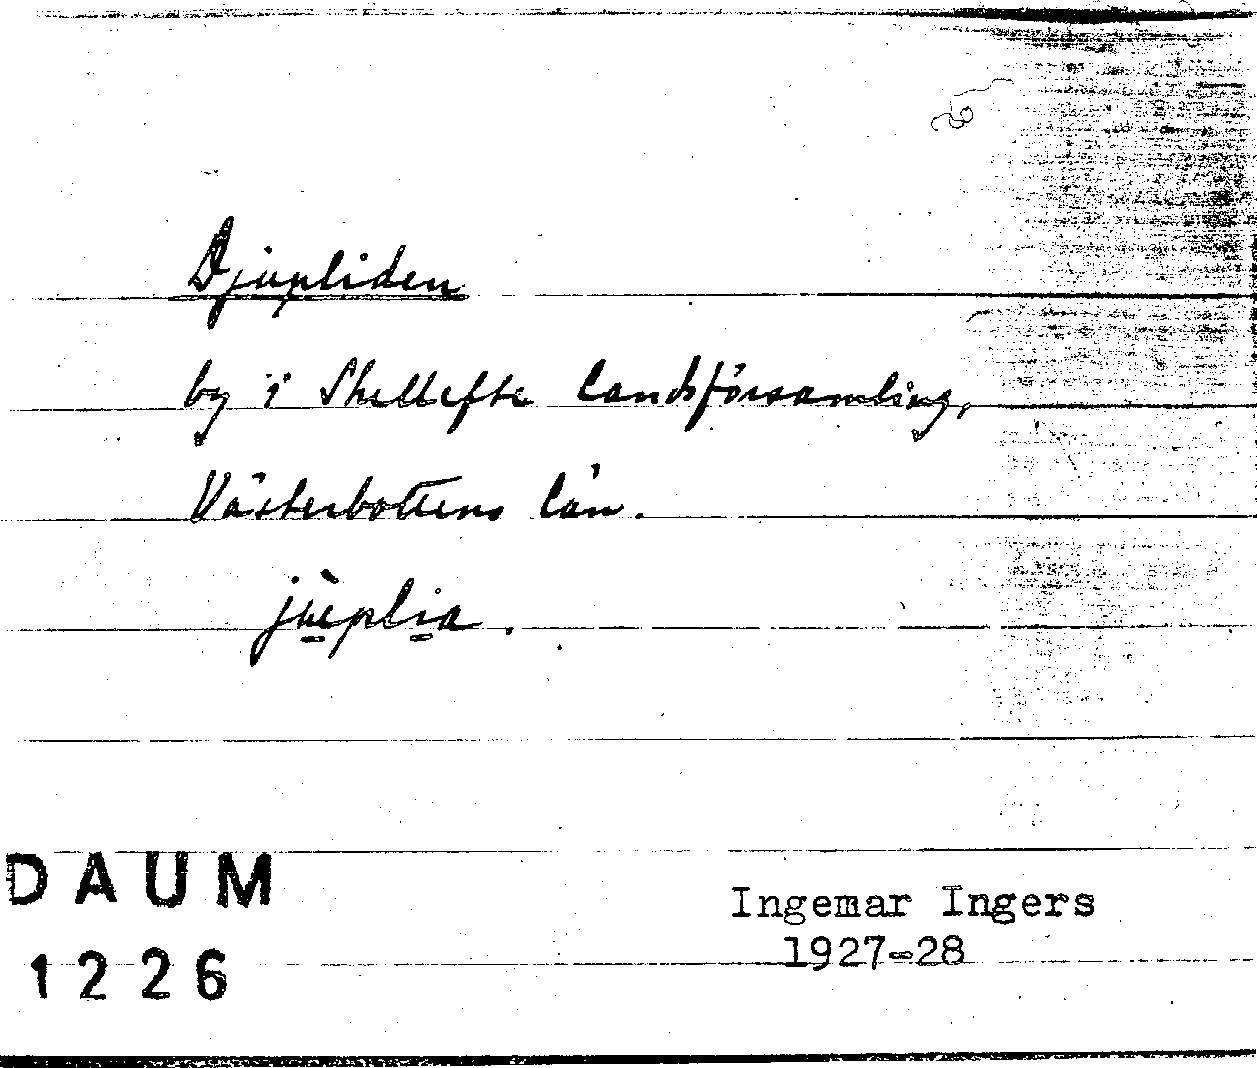 Djupliden
by i Skellefte landsförsamling,
Västerbottens län.
jùplia.
DAUM
1226
Ingemar Ingers
1927-28